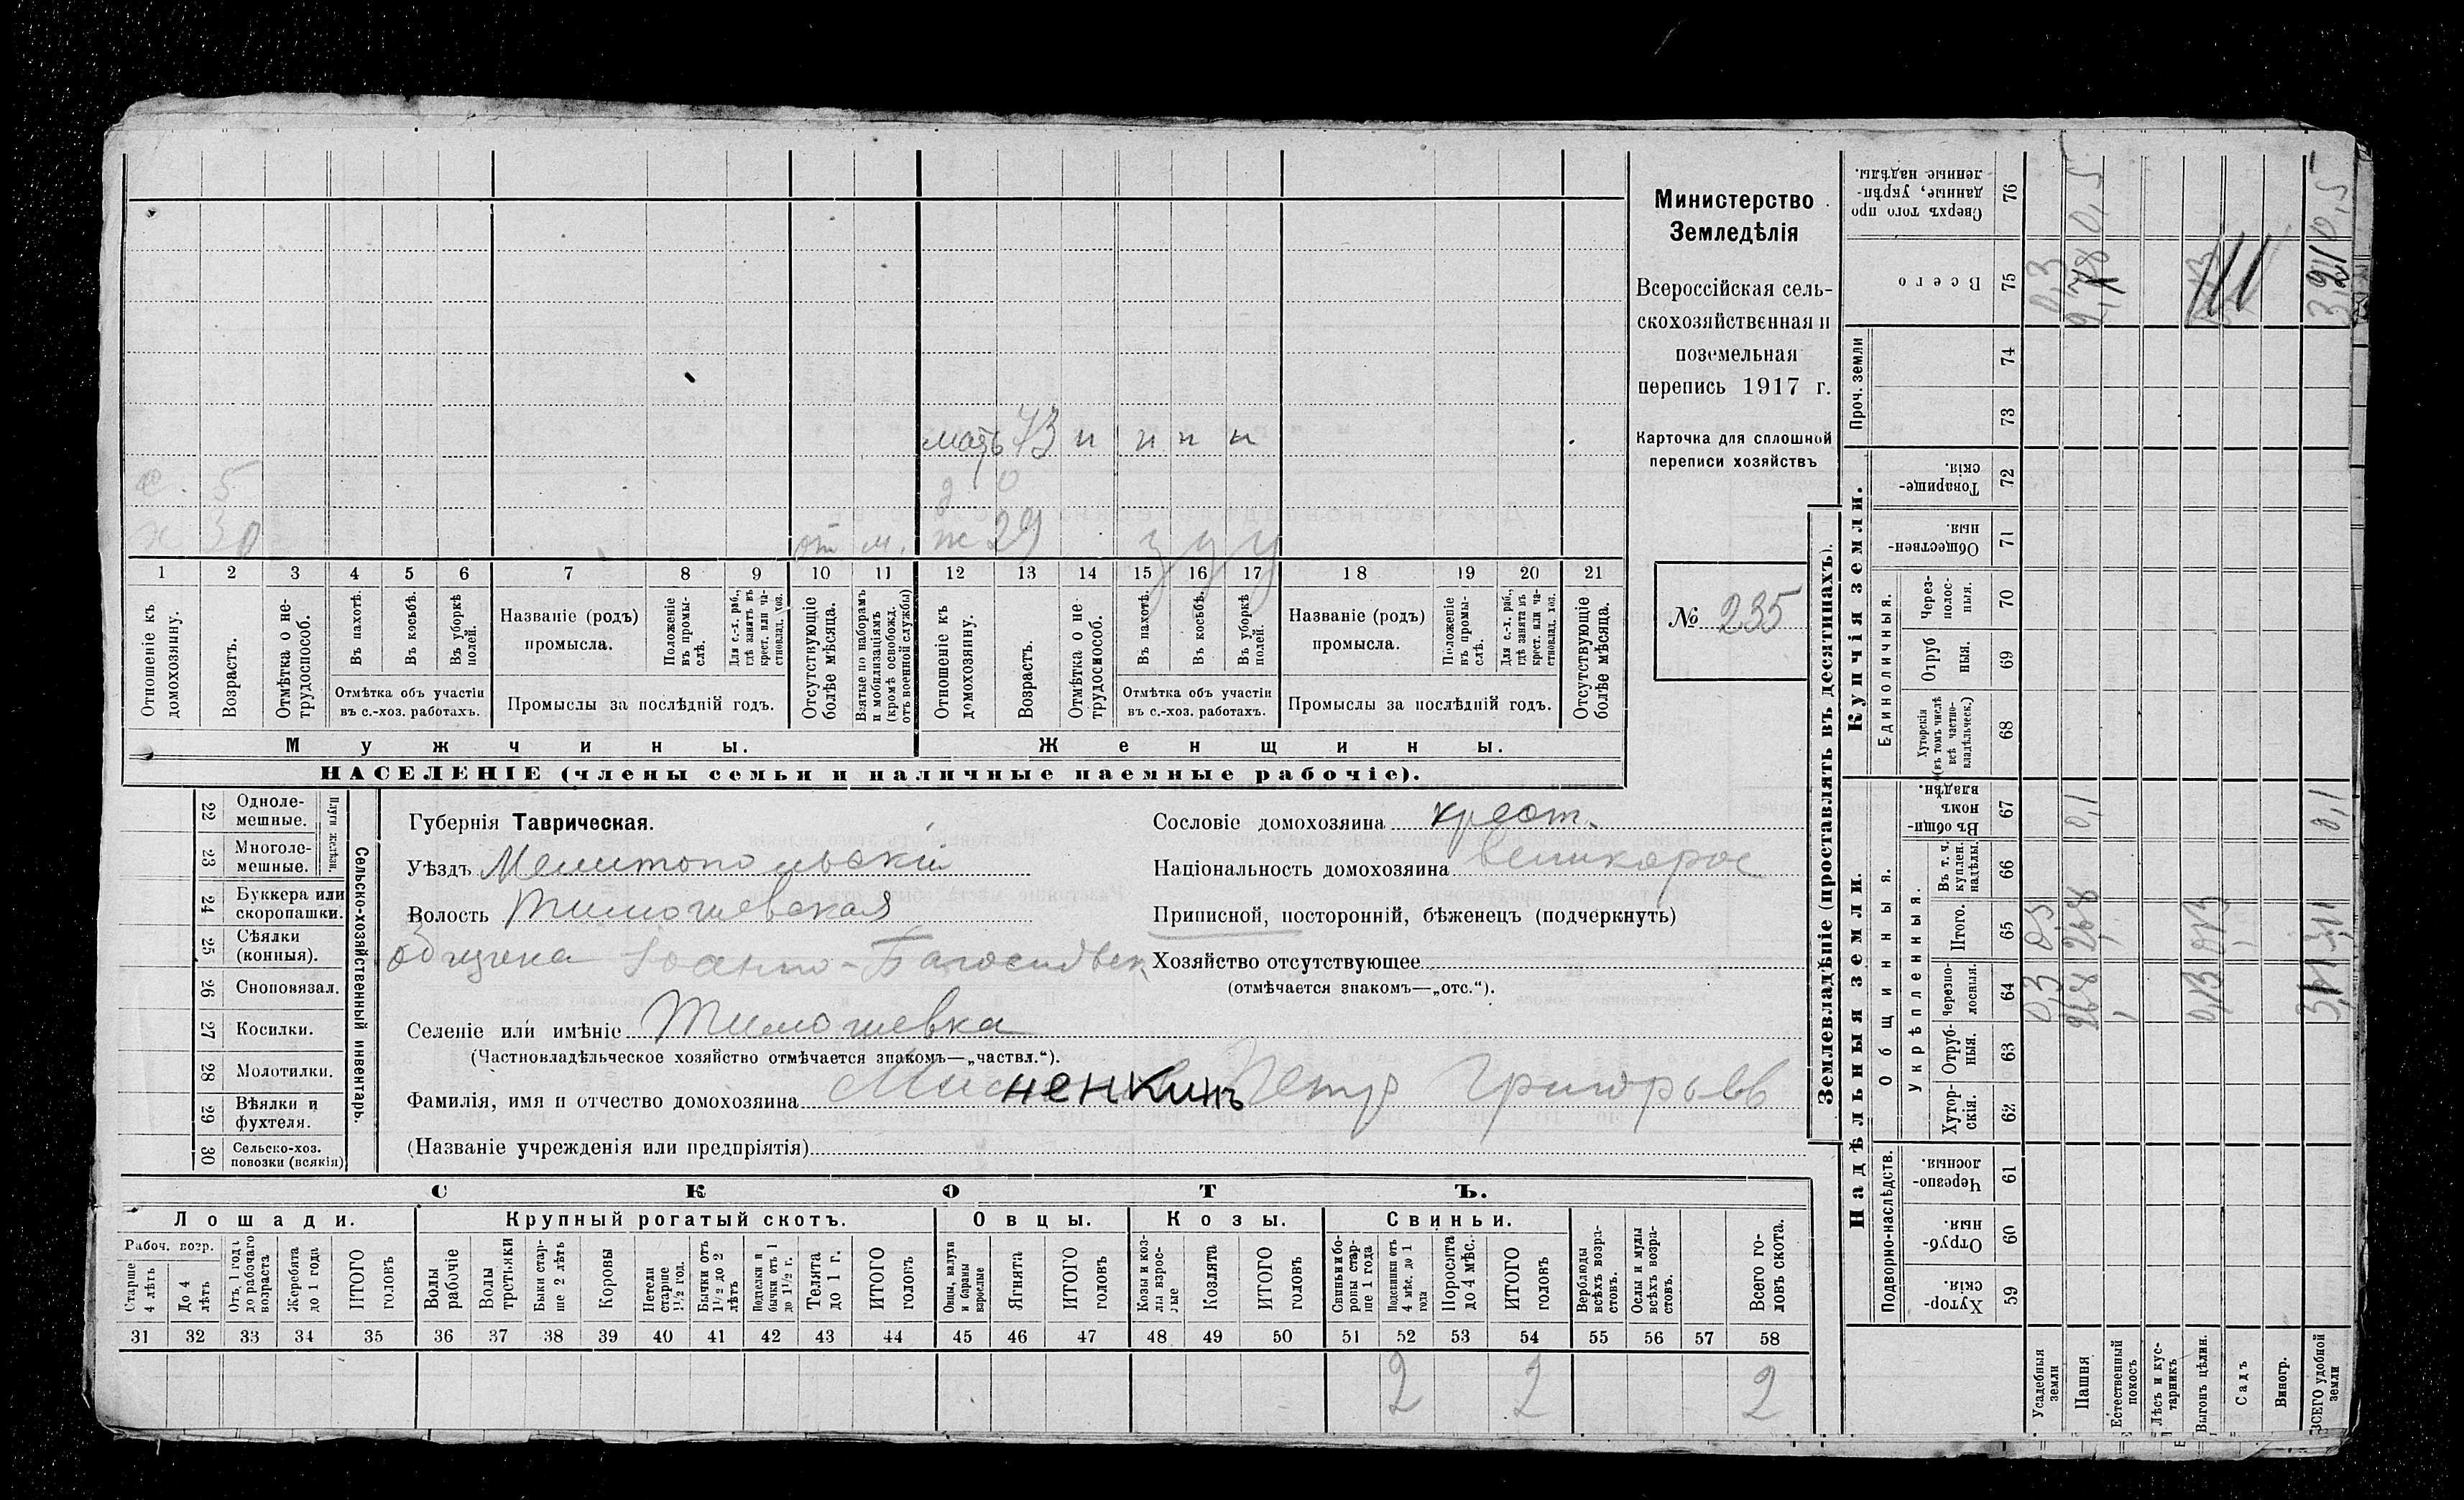 мать 73 н н н н
с. 5 д 0
х 30 от м. ж 29 у у у
1 2 3 4 5 6 7 8 9 10 11 12 13 14 15 16 17 18 19 20 21
Отношеніе къ домохозяину.
Возрастъ.
Отмѣтка о нетрудоспособ.
Въ пахотѣ.
Въ косьбѣ.
Въ уборкѣ полей.
Отмѣтка объ участіи
въ с.-хоз. работахъ.
Названіе (родъ)
промысла.
Положеніе въ промыслѣ.
Для с.-х. раб., гдѣ занятъ въ крест. или частновлад. хоз.
Промыслы за послѣдній годъ.
Отсутствующіе болѣе мѣсяца.
Взятые по наборамъ и мобилизаціямъ (кромѣ освобожд. отъ военной службы)
Отношеніе къ домохозяину.
Возрастъ.
Отмѣтка о нетрудоспособ.
Въ пахотѣ.
Въ косьбѣ.
Въ уборкѣ полей.
Отмѣтка объ участіи
въ с.-хоз. работахъ.
Названіе (родъ)
промысла.
Положеніе въ промыслѣ.
Для с.-х. раб., гдѣ занята въ крест. или частновлад. хоз.
Промыслы за послѣдній годъ.
Отсутствующіе болѣе мѣсяца.
Мужчины. Женщины.
НАСЕЛЕНІЕ (члены семьи и наличные наемные рабочіе).
Министерство
Земледѣлія
Всероссійская сель-
скохозяйственная и
поземельная
перепись 1917 г.
Карточка для сплошной
переписи хозяйствъ
№ 235
22 Одноле-
мешные.
23 Многоле-
мешные.
Плуги желѣзн.
24 Буккера или
скоропашки.
25 Сѣялки
(конныя).
26 Сноповязал.
27 Косилки.
28 Молотилки.
29 Вѣялки и
фухтеля.
30 Сельско-хоз.
повозки (всякія)
Сельско-хозяйственный инвентарь.
Губернія Таврическая.
Уѣздъ Мелитопольскій
Волость Тимошевская
община Іоанно-Богословск
Селеніе или имѣніе Тимошевка
(Частновладѣльческое хозяйство отмѣчается знакомъ—„частвл.“).
Фамилія, имя и отчество домохозяина Мисненкинъ Петр Григорьев
(Названіе учрежденія или предпріятія)
Сословіе домохозяина крест.
Національность домохозяина великорос
Приписной, посторонній, бѣженецъ (подчеркнуть)
Хозяйство отсутствующее
(отмѣчается знакомъ—„отс.“).
СКОТЪ.
Лошади. Крупный рогатый скотъ. Овцы. Козы. Свиньи.
Рабоч. возр.
Старше 4 лѣтъ
До 4 лѣтъ
Отъ 1 года до рабочаго возраста
Жеребята до 1 года
ИТОГО головъ
Волы рабочіе
Волы третьяки
Быки старше 2 лѣтъ
Коровы
Нетели старше 1½ год.
Бычки отъ 1½ до 2 лѣтъ
Подтелки и бычки отъ 1 до 1½ г.
Телята до 1 г.
ИТОГО головъ
Овцы, валухи и бараны взрослые
Ягнята
ИТОГО головъ
Козы и козлы взрослые
Козлята
ИТОГО головъ
Свиньи и боровы старше 1 года
Подсвинки отъ 4 мѣс. до 1 года
Поросята до 4 мѣс.
ИТОГО головъ
Верблюды всѣхъ возрастовъ.
Ослы и мулы всѣхъ возрастовъ.
Всего головъ скота.
31 32 33 34 35 36 37 38 39 40 41 42 43 44 45 46 47 48 49 50 51 52 53 54 55 56 57 58
2 2 2
Землевладѣніе (проставлять въ десятинахъ).
Надѣльныя земли. Купчія земли. Проч. земли
Подворно-наслѣдств. Общинныя. Единоличныя.
Укрѣпленныя.
Хутор-
скія. 59
Отруб-
ныя. 60
Черезпо-
лосныя. 61
Хутор-
скія. 62
Отруб-
ныя. 63
Черезпо-
лосныя. 64
Итого. 65
Въ т. ч. куплен. надѣлы. 66
Въ общинномъ владѣн. 67
Хуторскія (въ томъ числѣ всѣ частновладѣльческ.) 68
Отруб
ныя. 69
Через-
полос-
ныя. 70
Обществен-
ныя. 71
Товарище-
скія. 72
73
74
Всего 75
Сверхъ того проданные, укрѣпленные надѣлы. 76
Усадебныя земли 0,3 0,3 0,3
Пашня 2,68 2,68 0,1 2,78 0,5
Естественный покосъ
Лѣсъ и кустарникъ
Выгонъ цѣлин. 0,13 0,13
Садъ
Виногр.
ВСЕГО удобной земли 0,1 0,5